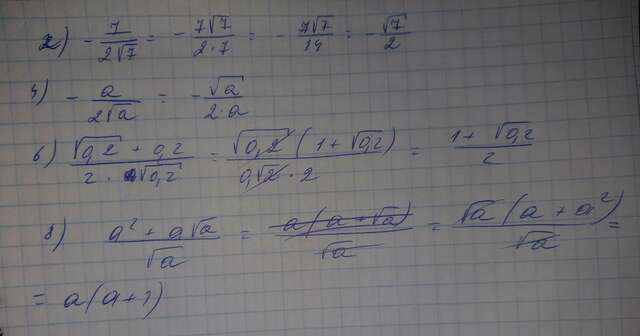 2) - 7/(2√7) = - (7√7)/(2·7) = - (7√7)/14 = - √7/2
4) - a/(2√a) = - √a/(2·a)
6) (√0,2 + 0,2)/(2·√0,2) = (√0,2 (1 + √0,2))/(0,√2 · 2) = (1 + √0,2)/2
8) (a² + a√a)/√a = (a(a + √a))/√a = (√a (a + a²))/√a =
= a(a+1)